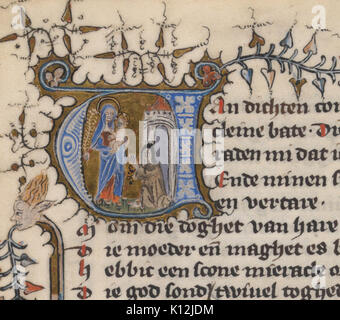 an dichten com
cleine bate. Di
raden mi dat i
Ende minen s
en vertare.
om die doghet van hare
ie moeder eñ maghet es b
h ebbic een scone mieracle o
ie god sond' twiuel toghe
alamy